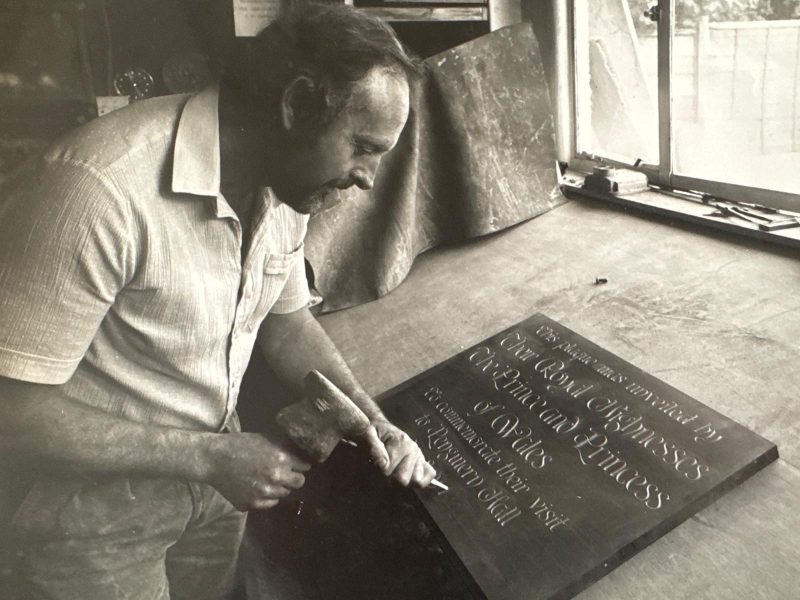 This plaque was unveiled by
Their Royal Highnesses
The Prince and Princess
of Wales
to commemorate their visit
to Pengwern Hall